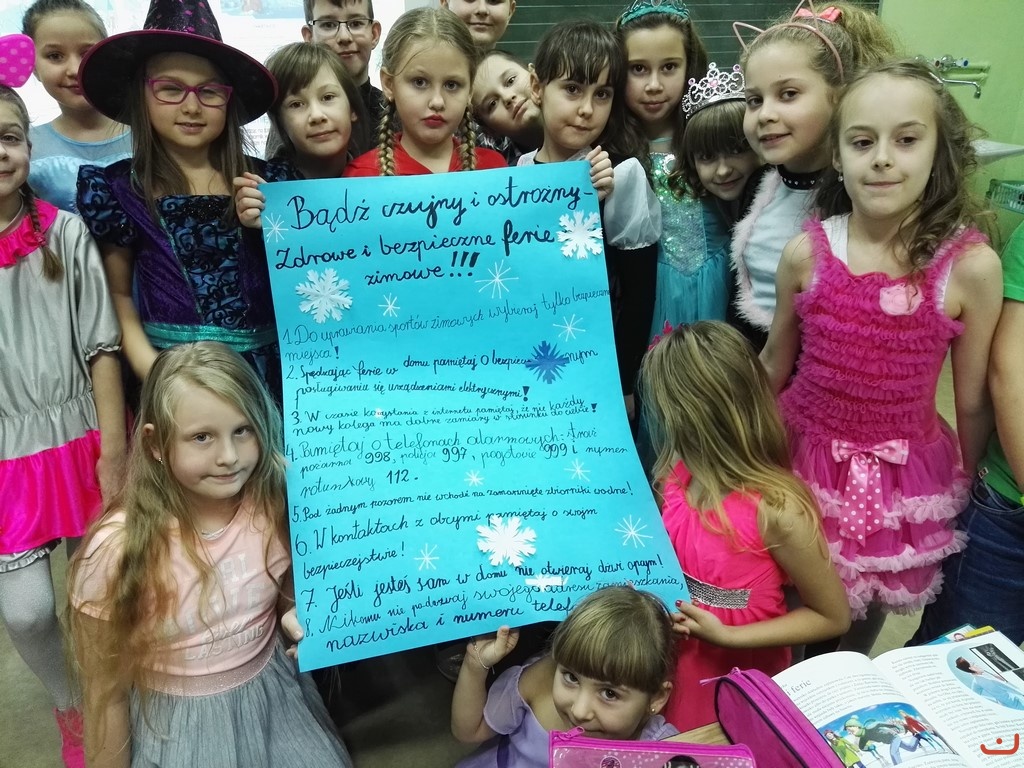 Bądź czujny i ostrożny-
Zdrowe i bezpieczne ferie
zimowe!!!
1. Do uprawiania sportów zimowych wybieraj tylko bezpieczne
miejsca!
2. Spędzając ferie w domu pamiętaj o bezpiecznym
posługiwaniu się urządzeniami elektrycznymi!
3. W czasie korzystania z internetu pamiętaj, że nie każdy
nowy kolega ma dobre zamiary w stosunku do ciebie!
4. Pamiętaj o telefonach alarmowych: straż
pożarna 998, policja 997, pogotowie 999 i numer
ratunkowy 112.
5. Pod żadnym pozorem nie wchodź na zamarznięte zbiorniki wodne!
6. W kontaktach z obcymi pamiętaj o swoim
bezpieczeństwie!
7. Jeśli jesteś sam w domu nie otwieraj drzwi obcym!
8. Nikomu nie podawaj swojego adresu zamieszkania,
nazwiska i numeru
ferie